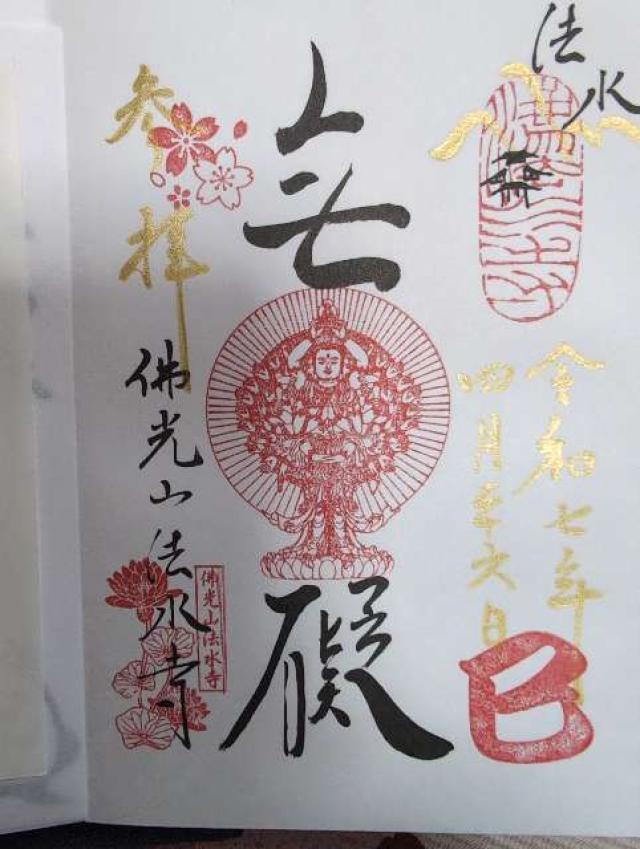 法水
令和七年
四月二十六日
巳
無礙
参拝
佛光山法水寺
佛光山法水寺